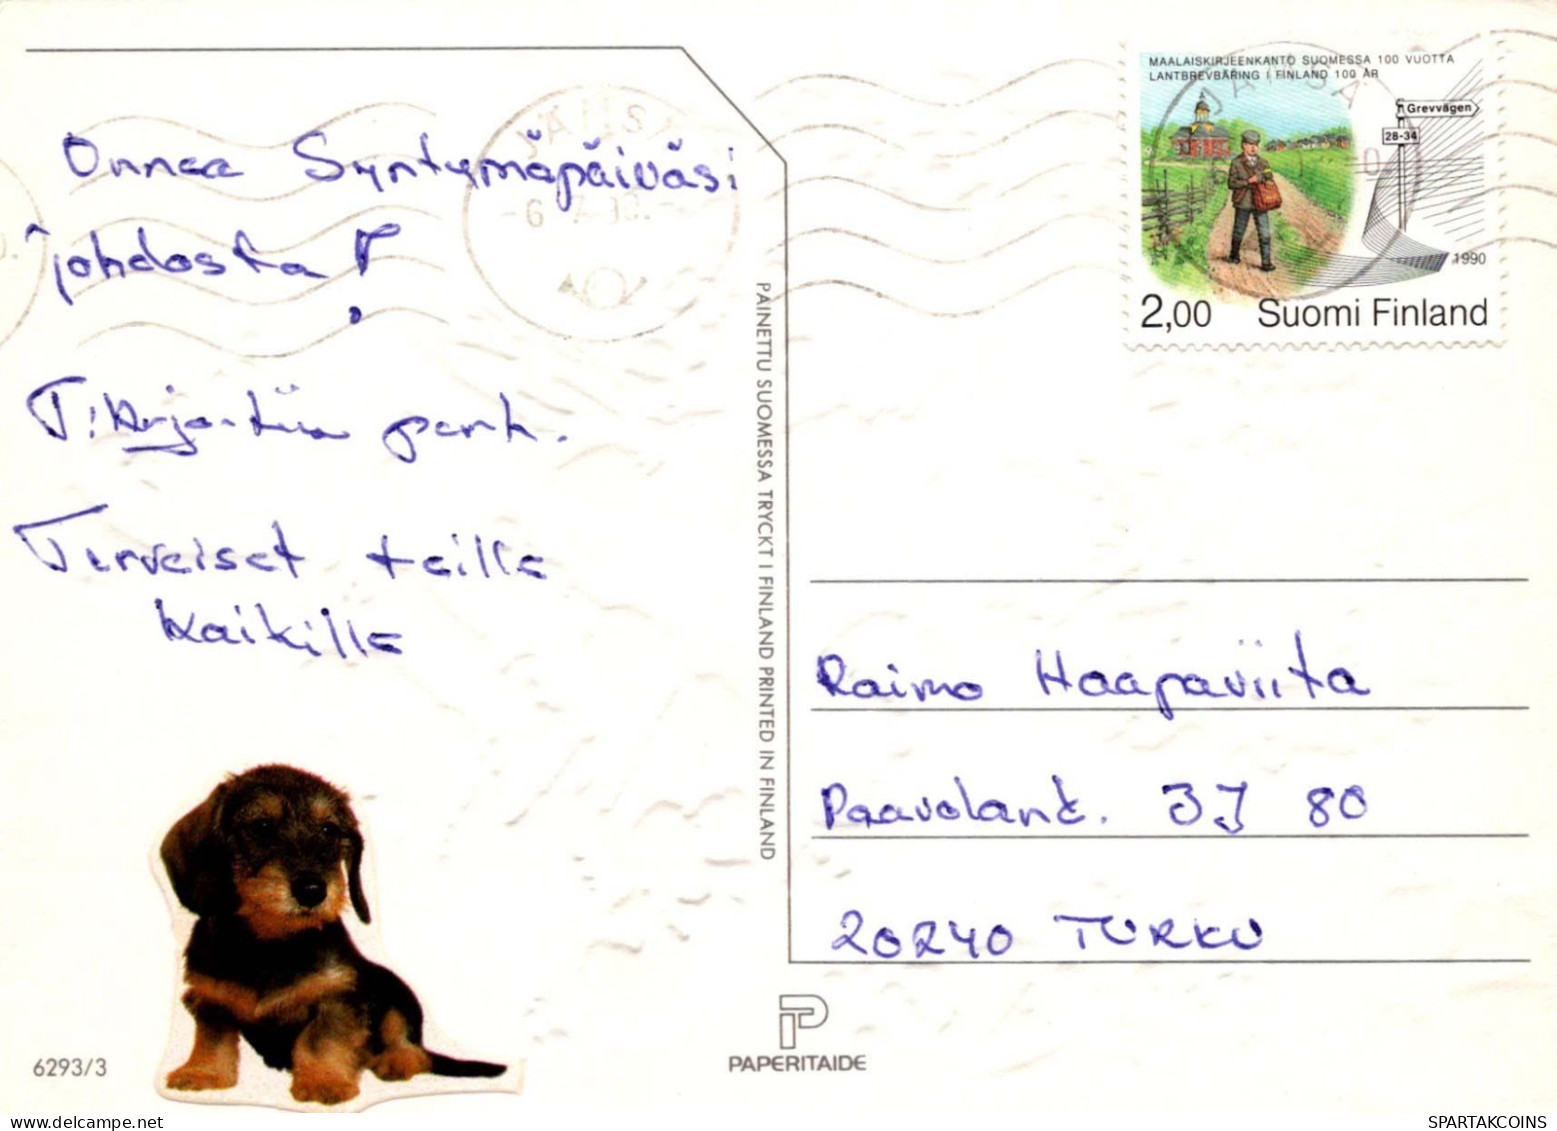 Onnea Syntymäpäiväsi
johdosta!
T: Kirja-tiia perh.
Terveiset teille
Kaikille
6293/3
PAINETTU SUOMESSA TRYCKT I FINLAND PRINTED IN FINLAND
PAPERITAIDE
JÄMSÄ
MAALAISKIRJEENKANTO SUOMESSA 100 VUOTTA
LANTBREVBÄRING I FINLAND 100 ÅR
Grevvägen
28-34
1990
2,00 Suomi Finland
JÄMSÄ
Raimo Haapaviita
Paavolant. 3J 80
20240 TURKU
SPARTAKCOINS